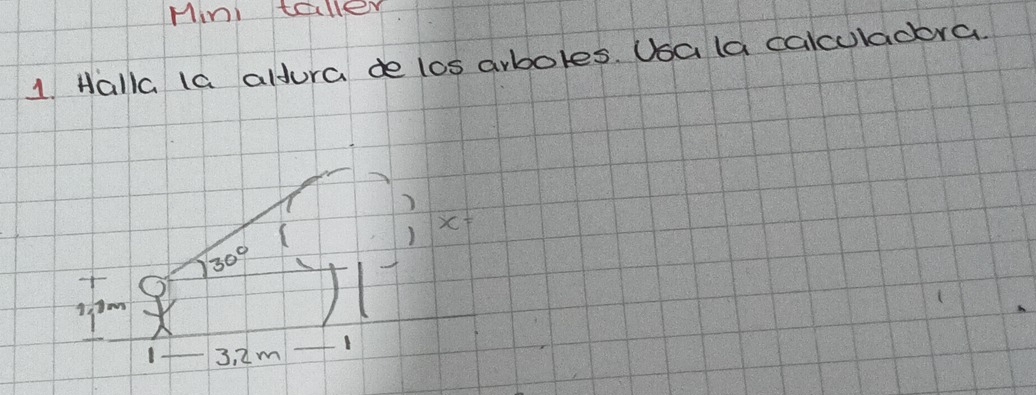 Mini taller.
1. Halla la altura de los arboles. Usa la calculadora.
x=
30°
3,2m